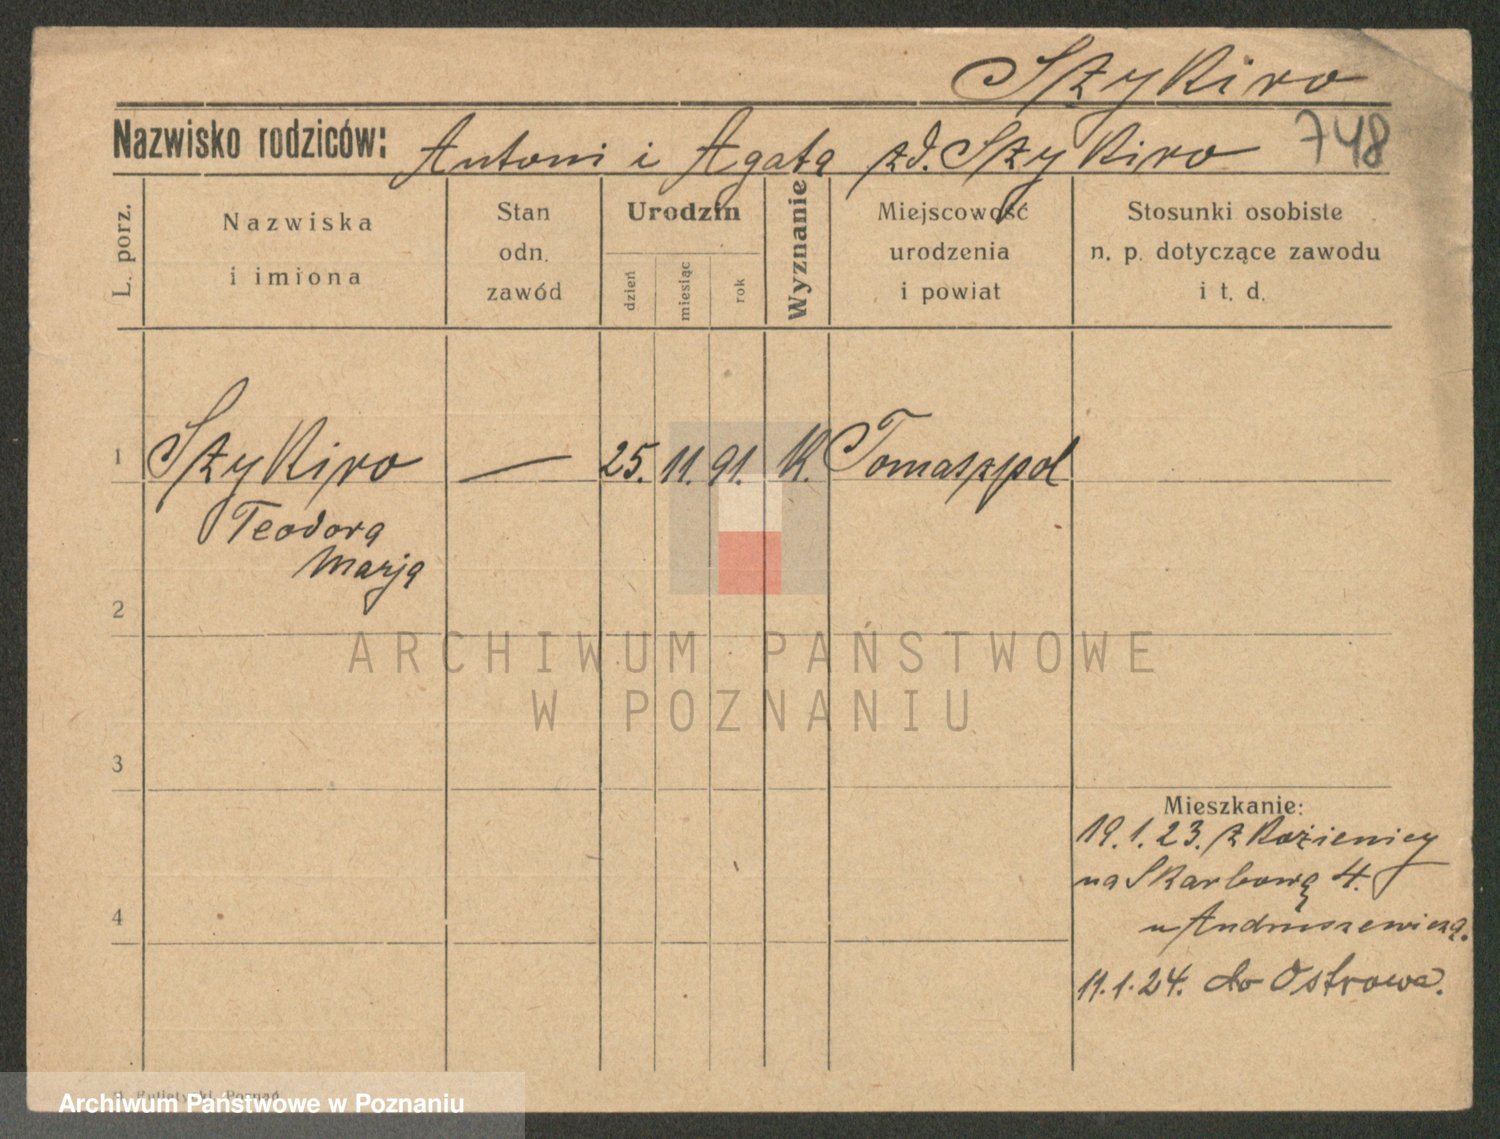 Szykiro
Nazwisko rodziców: Antoni i Agata zd. Szykiro 748
L. porz.
Nazwiska
i imiona
Stan
odn.
zawód
Urodzin
dzień
miesiąc
rok
Wyznanie
Miejscowość
urodzenia
i powiat
Stosunki osobiste
n. p. dotyczące zawodu
i t. d.
1 Szykiro — 25. 11. 91. K. Tomaszpol
Teodora
Marja
2
ARCHIWUM PAŃSTWOWE
W POZNANIU
3
Mieszkanie:
19.1.23. z Kozienicy
na Skarbową 4.
u Andruszewicza.
4
11.1.24. do Ostrowa.
Archiwum Państwowe w Poznaniu